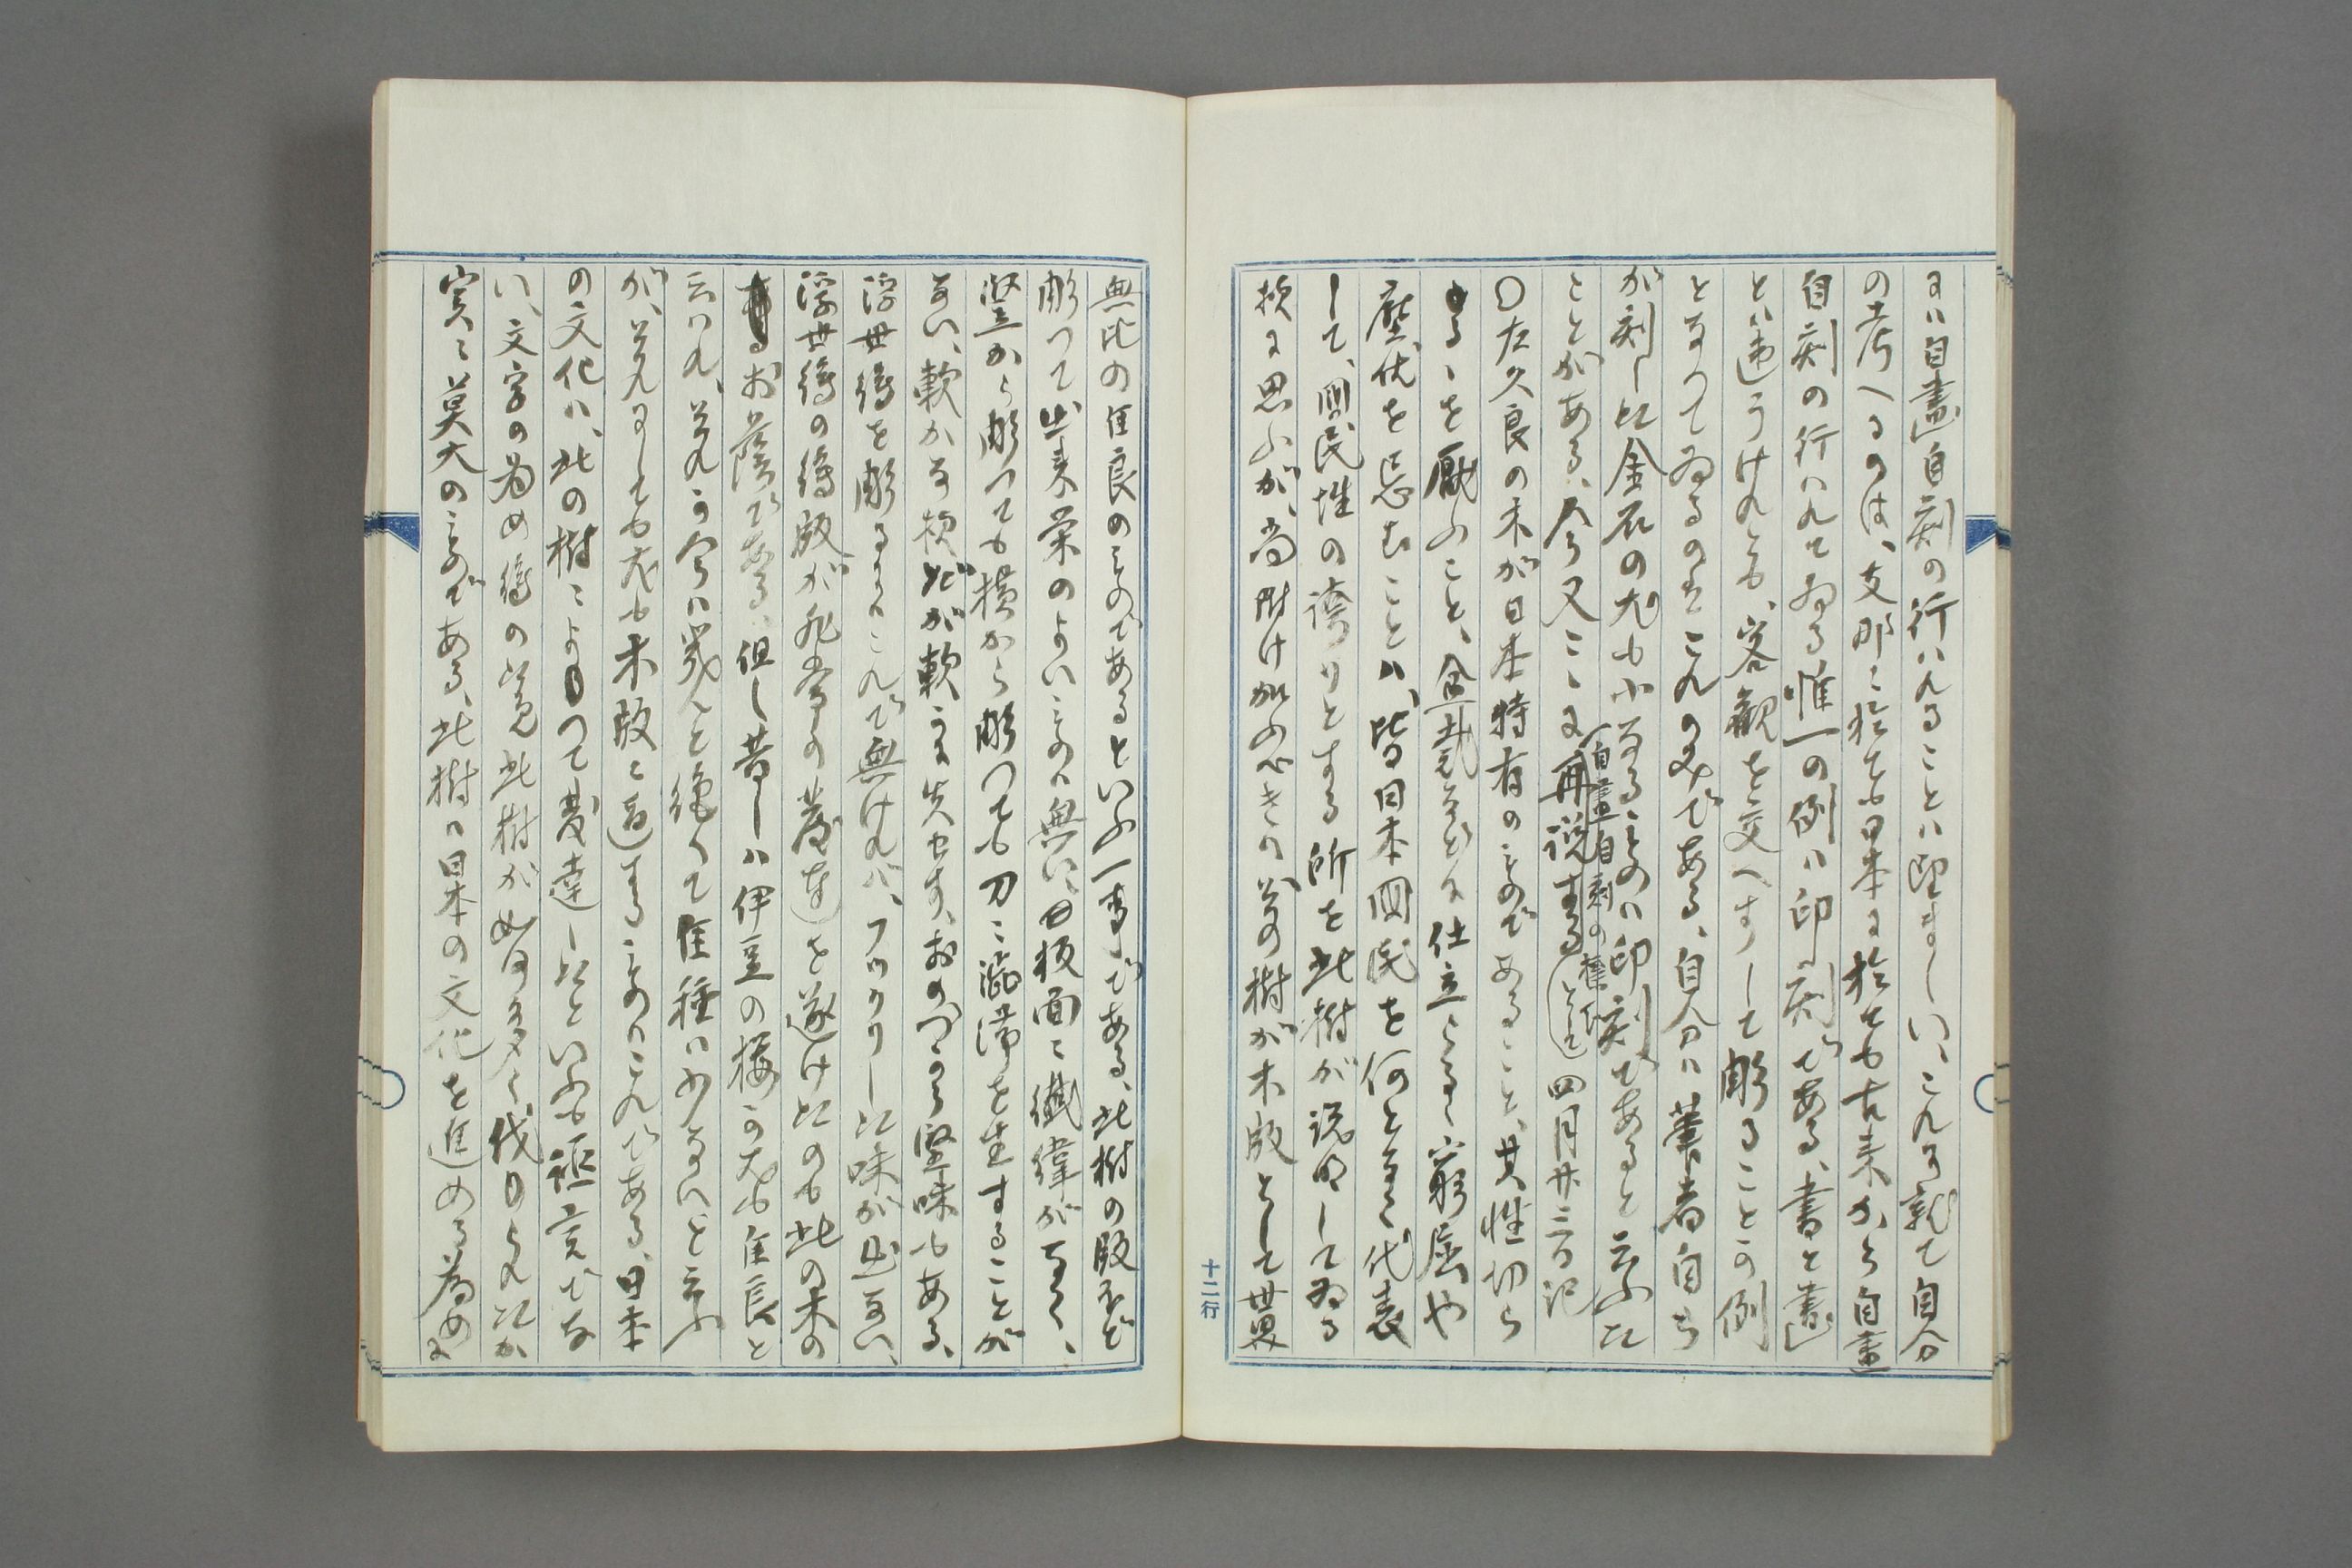 は自畫自刻の行はれることは望ましい、これに就て自分
の考へるのは、支那に於ても日本に於ても古来から自畫
自刻の行はれてゐる惟一の例は印刻である、書と畫
とは違うけれども、客觀を交へずして彫ることの例
となつてゐるのはこれのみである、自分は著者自ら
が刻した金石の尤も小なるものは印刻であると云ふた
ことがある、今又ここに再説する
(自畫自刻の
として)四月廿三日記
〇左久良の木が日本特有のものであること、其性切ら
るゝを厭ふこと、盆栽などに仕立らるゝ窮屈や
壓伏を忌むことは、皆日本国民を何となく代表
して、国民性の誇りとする所を此樹が説明してゐる
様に思ふが、尚附け加ふべきは其の樹が木版として世界
無比の佳良のものであるといふ一事である、此樹の版木ほど
彫つて出来栄のよいものは無い、板面に繊緯がなく、
竪から彫つても横から彫つても刀に澁滞を生ずることが
ない、軟かな様だが軟に失せず、おのづから堅味もある、
浮世繪を彫るにはこれで無ければ、フックリした味が出ない、
浮世繪の繪版が非常の發達を遂げたのも此の木の
お蔭である、但し昔しは伊豆の桜が尤も佳良と
云はれ、それが今は殆んと絶へて佳種は少ないと云ふ
が、それにしても尤も木版に適するものはこれである、日本
の文化は、此の樹によつて發達したといふも誣言でな
い、文字の為め繪の為め此樹が如何に多く伐られたか
実に莫大のものである、此樹は日本の文化を進める為めに
十二行